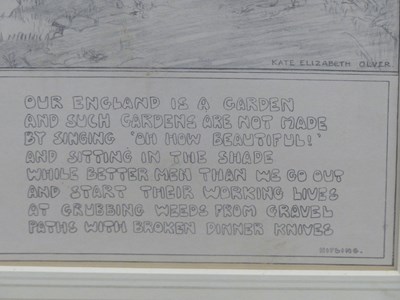 KATE ELIZABETH OLVER
OUR ENGLAND IS A GARDEN
AND SUCH GARDENS ARE NOT MADE
BY SINGING 'OH HOW BEAUTIFUL!'
AND SITTING IN THE SHADE
WHILE BETTER MEN THAN WE GO OUT
AND START THEIR WORKING LIVES
AT GRUBBING WEEDS FROM GRAVEL
PATHS WITH BROKEN DINNER KNIVES
KIPLING.